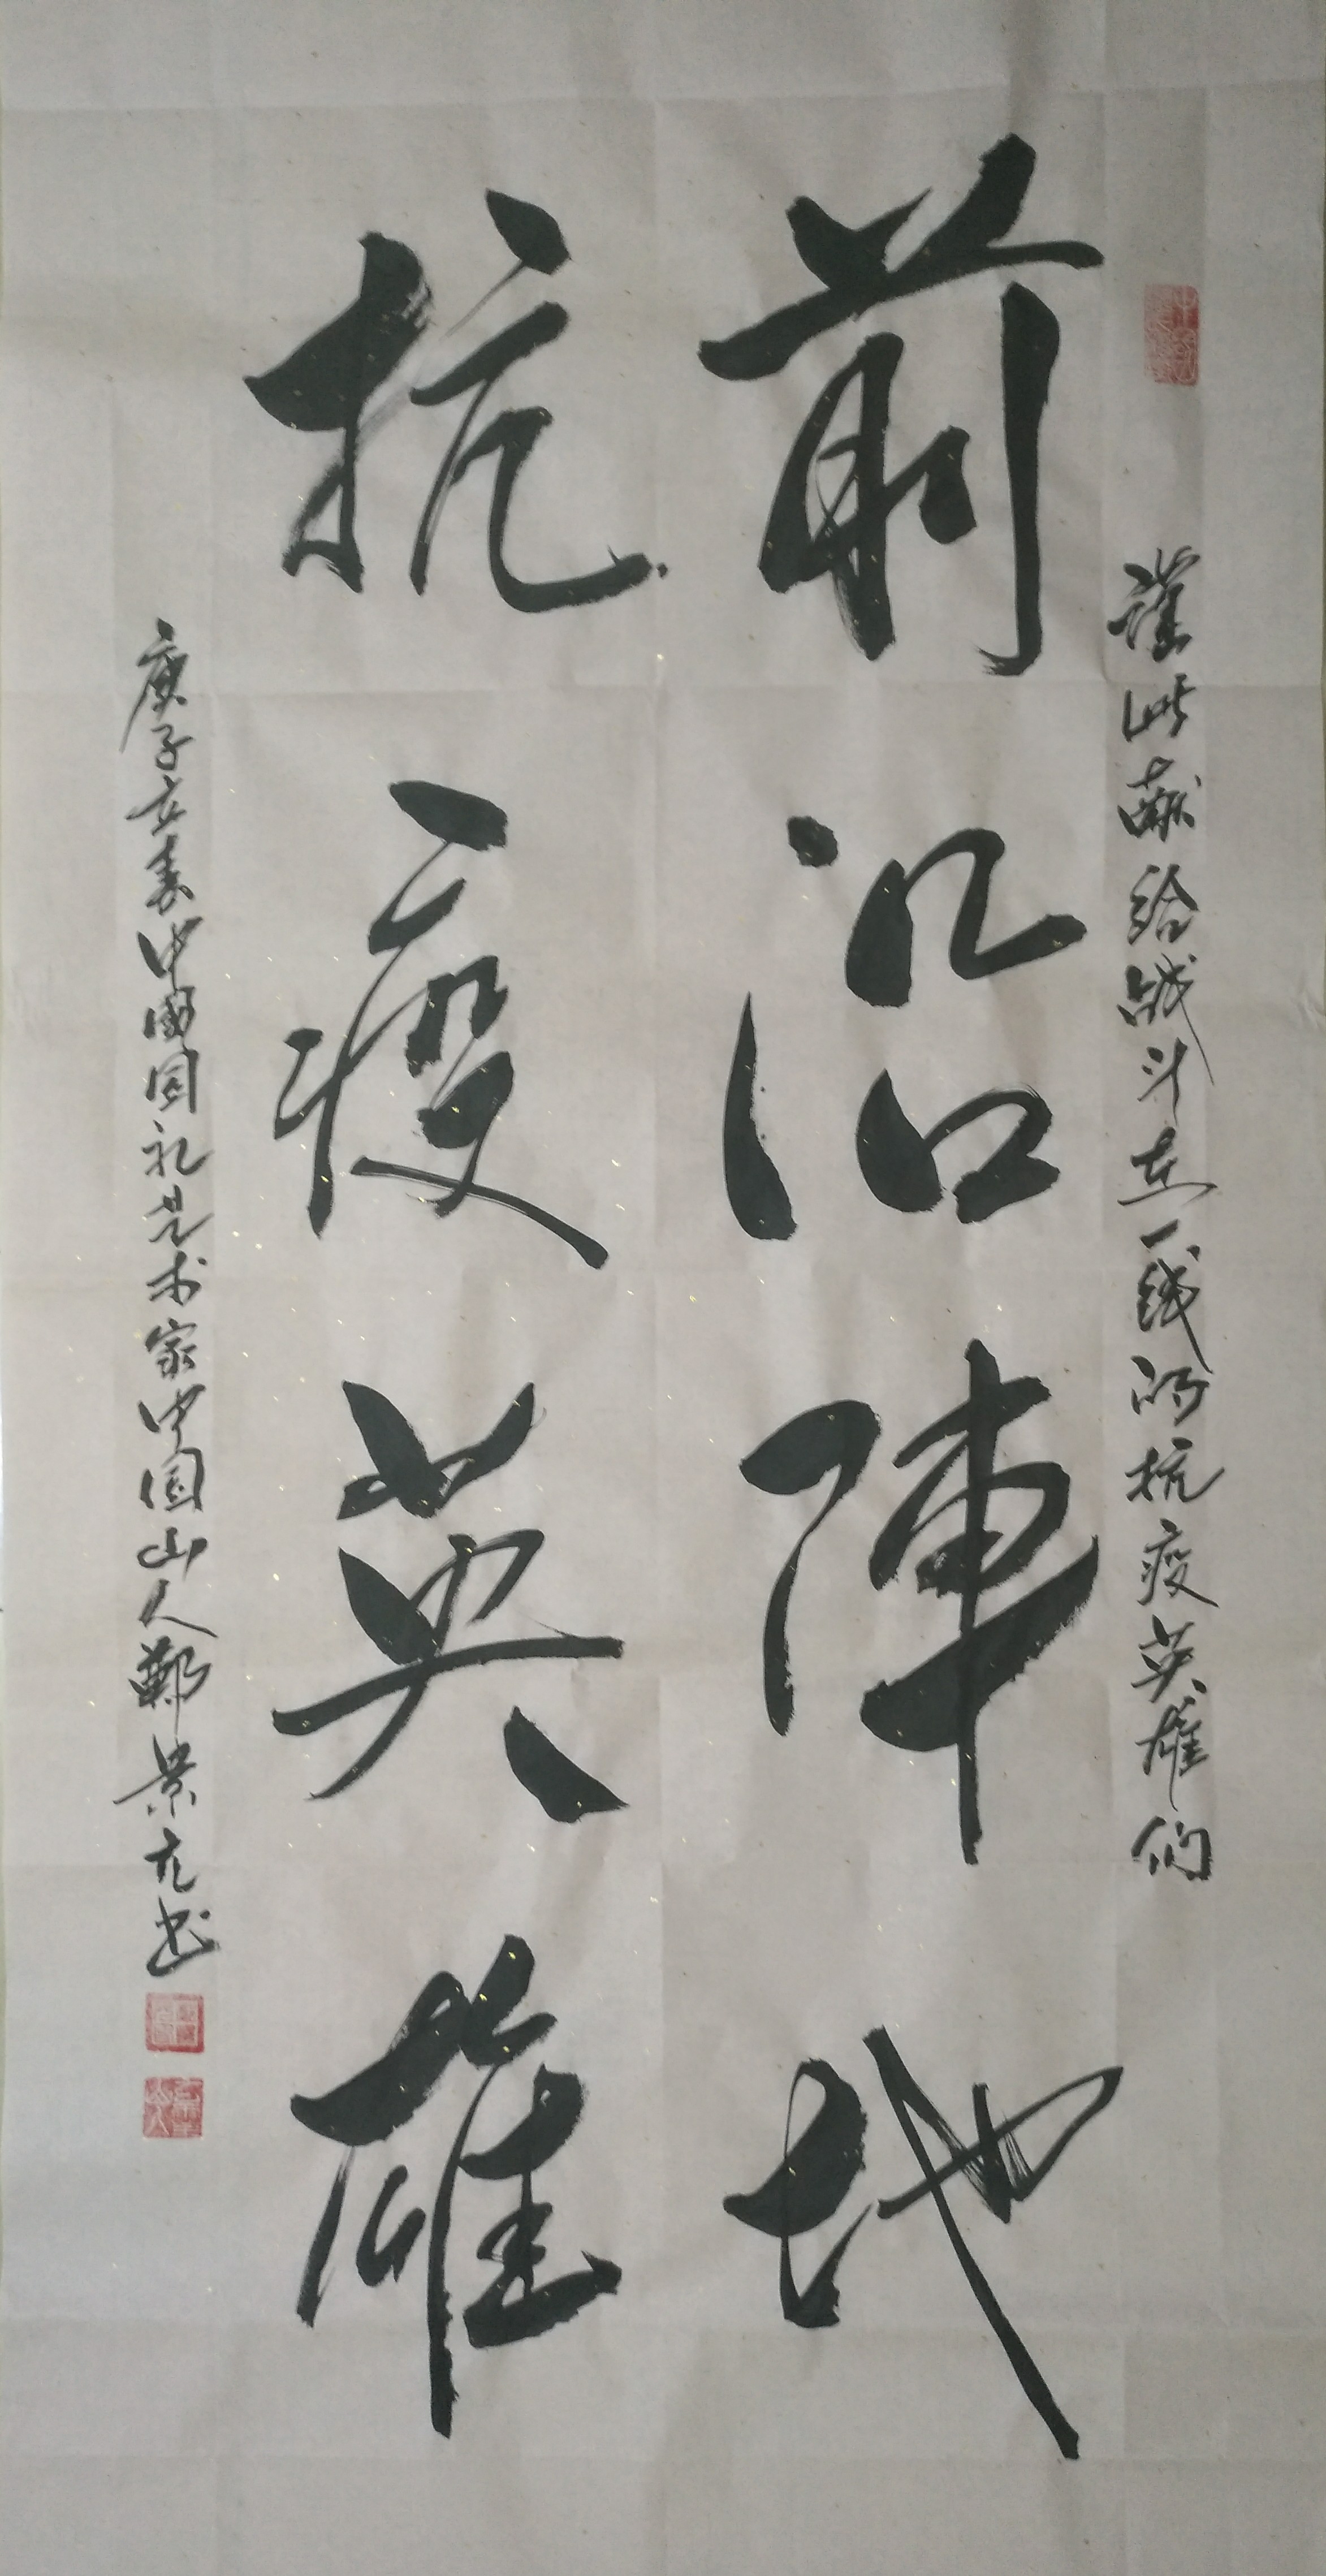 谨此献给战斗在一线的抗疫英雄们
前沿陣地
抗疫英雄
庚子立春中國国礼艺术家中国山人鄭景元书